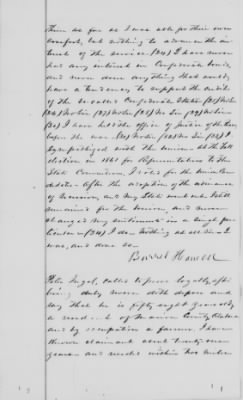 them as far as I was able for their own
comfort, but nothing to advance the in-
terest of the service (24) I have never
had any interest in Confederate bonds,
and never done anything that could
have a tendency to support the credit
of the so called Confederate States (25) No Sir
(26) No Sir (27) No Sir (28) No Sir (29) No Sir
(30) I have held the office of justice of the Peace
before the war. (31) No Sir (32) No Sir (33) I
sympathized with the Union. At the
election in 1861 for Representatives to the
State Convention, I voted for the Union can-
didate. After the adoption of the ordinance
of secession, and my State went out, I still
remained for the Union and never
changed my sentiments in a single par-
ticular (34) I do. Nothing at all Sir. I
was, and done so
Borrel Howell
Peter Ingol, called to prove loyalty, after
being duly sworn doth depose and
say that he is fifty eight years old,
a resident of Marion County Alabama
and by occupation a farmer. I have
known claimant about twenty one
years and resides within two miles